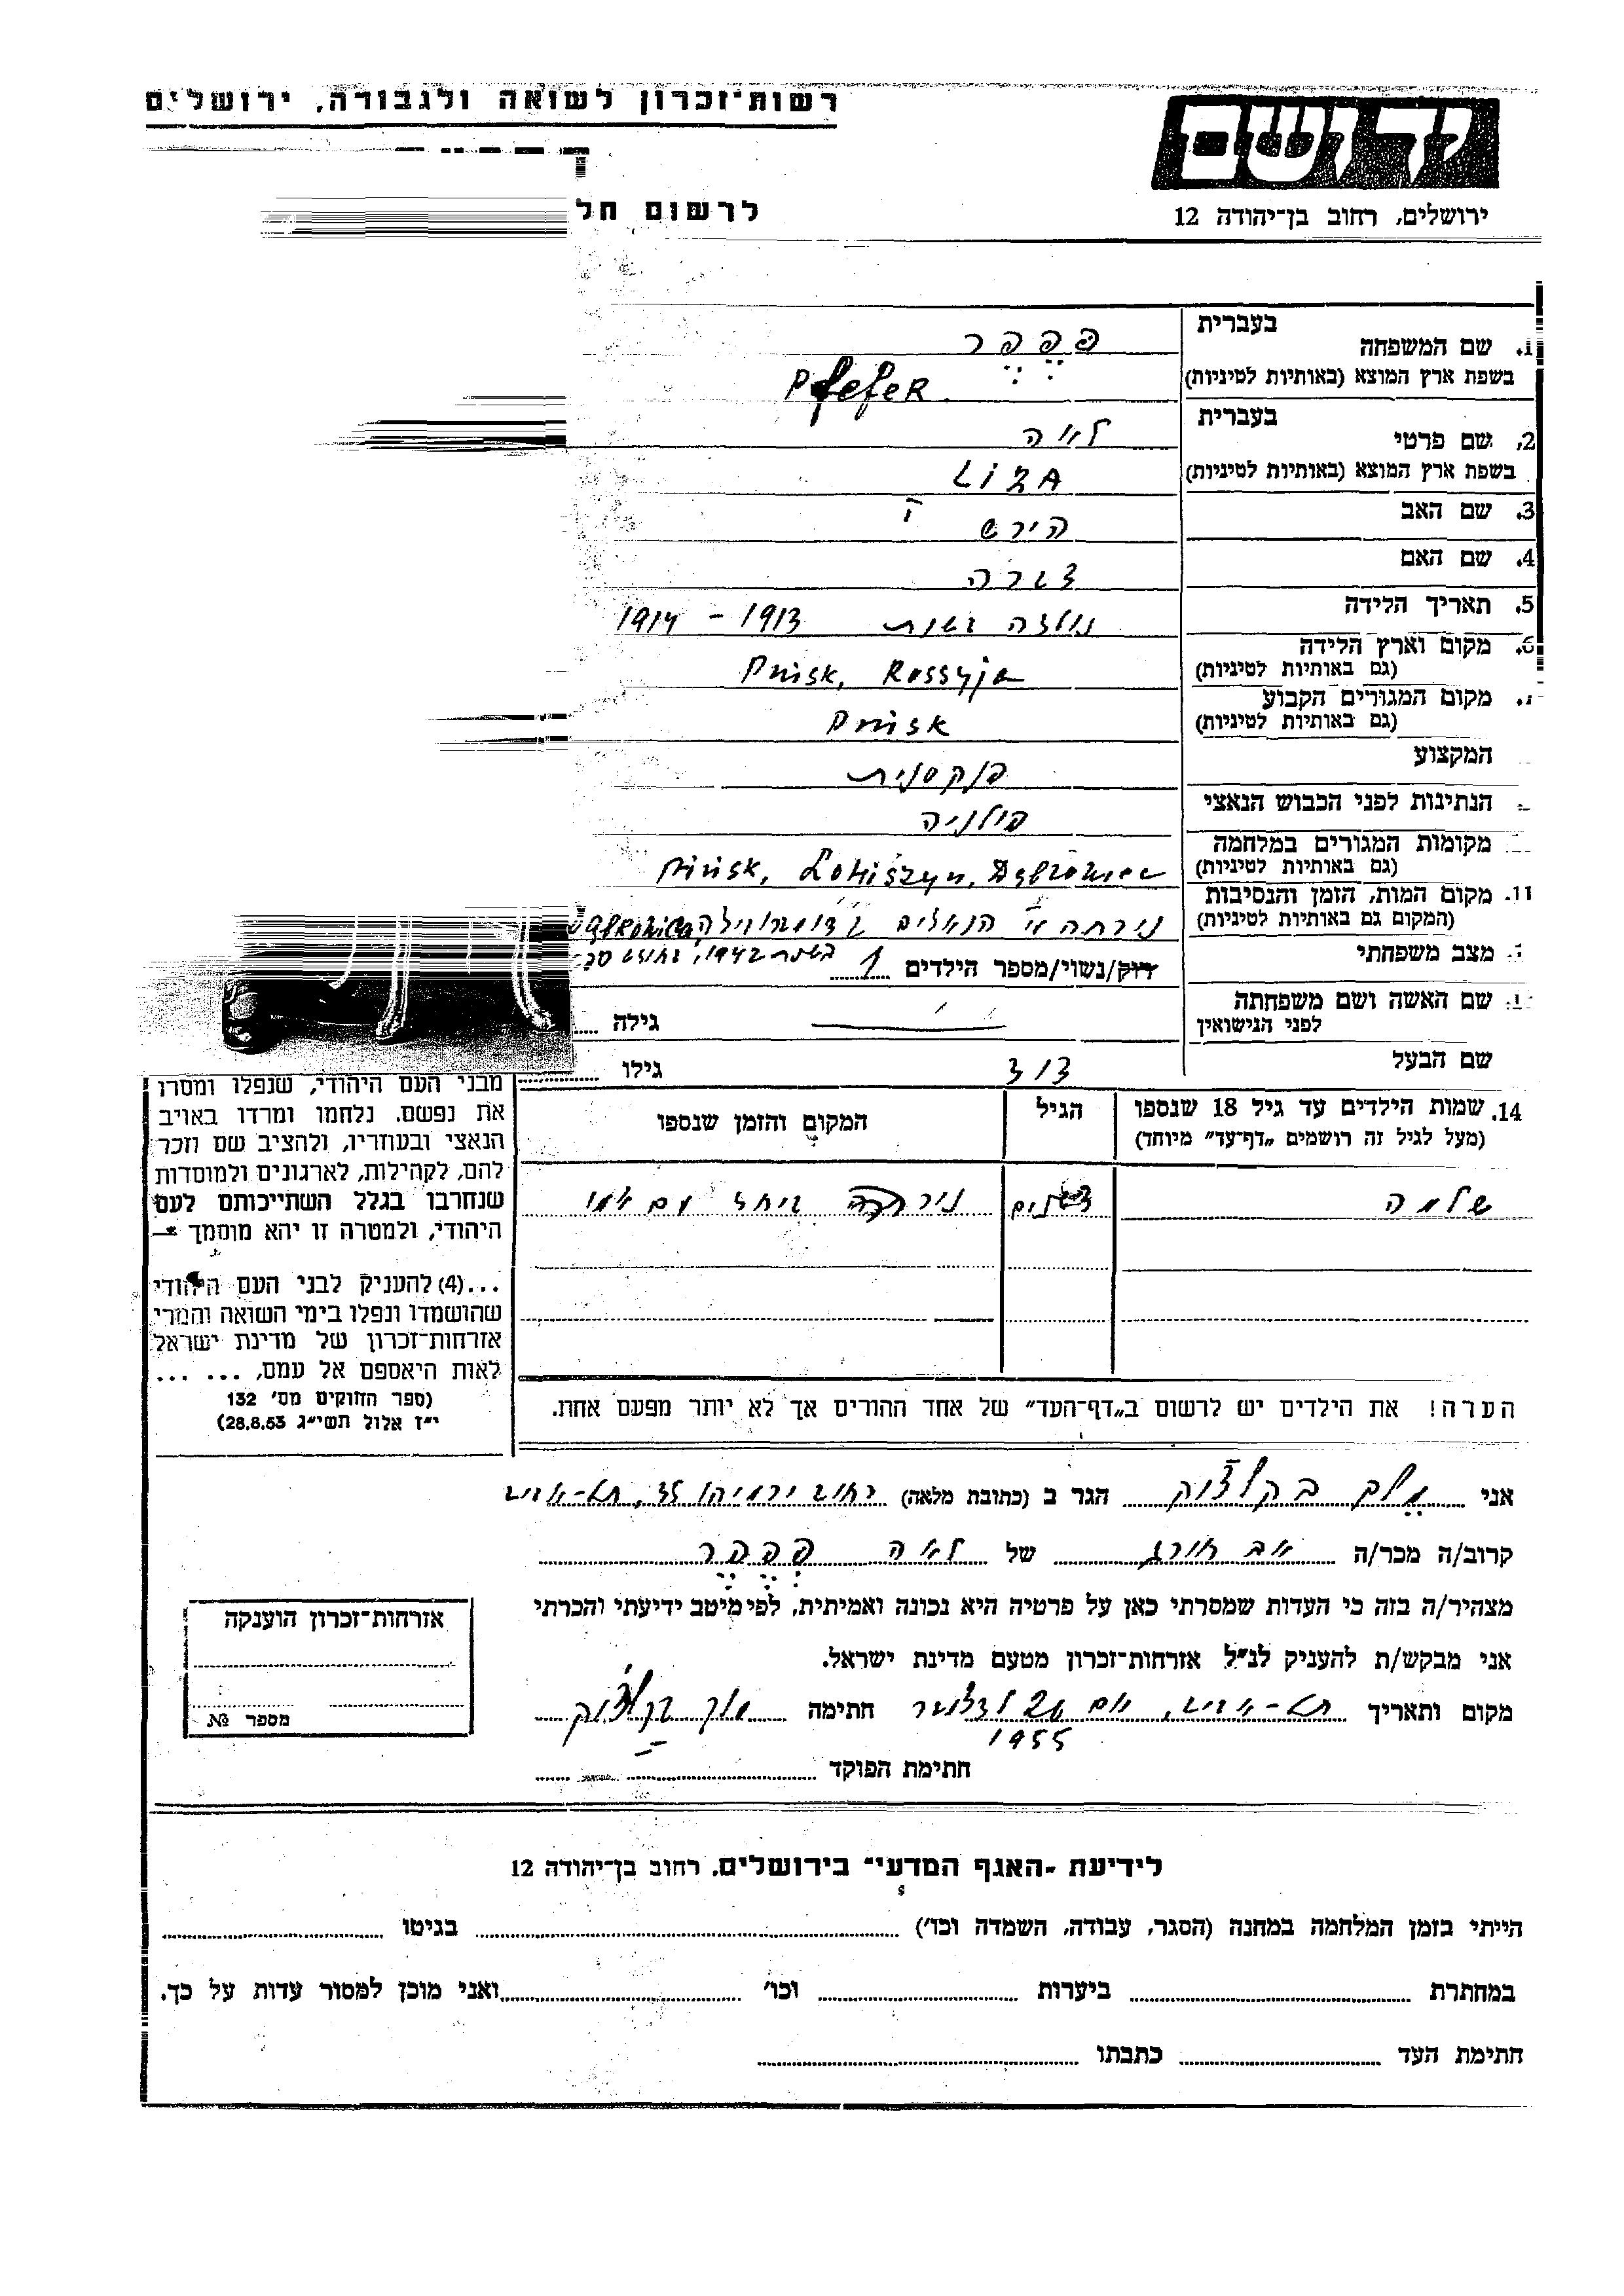 רשות־זכרון לשואה ולגבורה, ירושלים
יד ושם
ירושלים, רחוב בן־יהודה 12
לרשום חל
1. שם המשפחה בעברית פפפר
בשפת ארץ המוצא (באותיות לטיניות) Pfefer
2. שם פרטי בעברית לאה
בשפת ארץ המוצא (באותיות לטיניות) LIZA
3. שם האב הירש
4. שם האם
5. תאריך הלידה נולדה בשנת 1913 - 1914
6. מקום וארץ הלידה
(גם באותיות לטיניות) Pinsk, Rossyja
מקום המגורים הקבוע
(גם באותיות לטיניות) Pinsk
המקצוע
הנתינות לפני הכבוש הנאצי פולניה
מקומות המגורים במלחמה
(גם באותיות לטיניות) Pinsk,
11. מקום המות, הזמן והנסיבות
(המקום גם באותיות לטיניות)
מצב משפחתי רוק/נשוי/מספר הילדים 1
שם האשה ושם משפחתה
לפני הנישואין גילה
שם הבעל דוד גילו
מבני העם היהודי, שנפלו ומסרו
את נפשם, נלחמו ומרדו באויב
הנאצי ובעוזריו, ולהציב שם וזכר
להם, לקהילות, לארגונים ולמוסדות
שנחרבו בגלל השתייכותם לעם
היהודי, ולמטרה זו יהא מוסמך —
...(4) להעניק לבני העם היהודי
שהושמדו ונפלו בימי השואה והמרי
אזרחות־זכרון של מדינת ישראל
לאות היאספם אל עמם, ... ...
(ספר החוקים מס׳ 132
י״ז אלול תשי״ג 28.8.53)
14. שמות הילדים עד גיל 18 שנספו הגיל המקום והזמן שנספו
(מעל לגיל זה רושמים „דף־עד״ מיוחד)
שלמה ביחד עם אמו
הערה! את הילדים יש לרשום ב„דף־העד״ של אחד ההורים אך לא יותר מפעם אחת.
אני הגר ב (כתובת מלאה) רחוב ירמיהו תל-אביב
קרוב/ה מכר/ה אב חורג של לאה פפפר
מצהיר/ה בזה כי העדות שמסרתי כאן על פרטיה היא נכונה ואמיתית, לפי מיטב ידיעתי והכרתי
אני מבקש/ת להעניק לנ״ל אזרחות־זכרון מטעם מדינת ישראל.
מקום ותאריך תל-אביב, חתימה
1955
חתימת הפוקד
אזרחות־זכרון הוענקה
מספר №
לידיעת „האגף המדעי״ בירושלים, רחוב בן־יהודה 12
הייתי בזמן המלחמה במחנה (הסגר, עבודה, השמדה וכו׳) בגיטו
במחתרת ביערות וכו׳ ואני מוכן למסור עדות על כך.
חתימת העד כתבתו